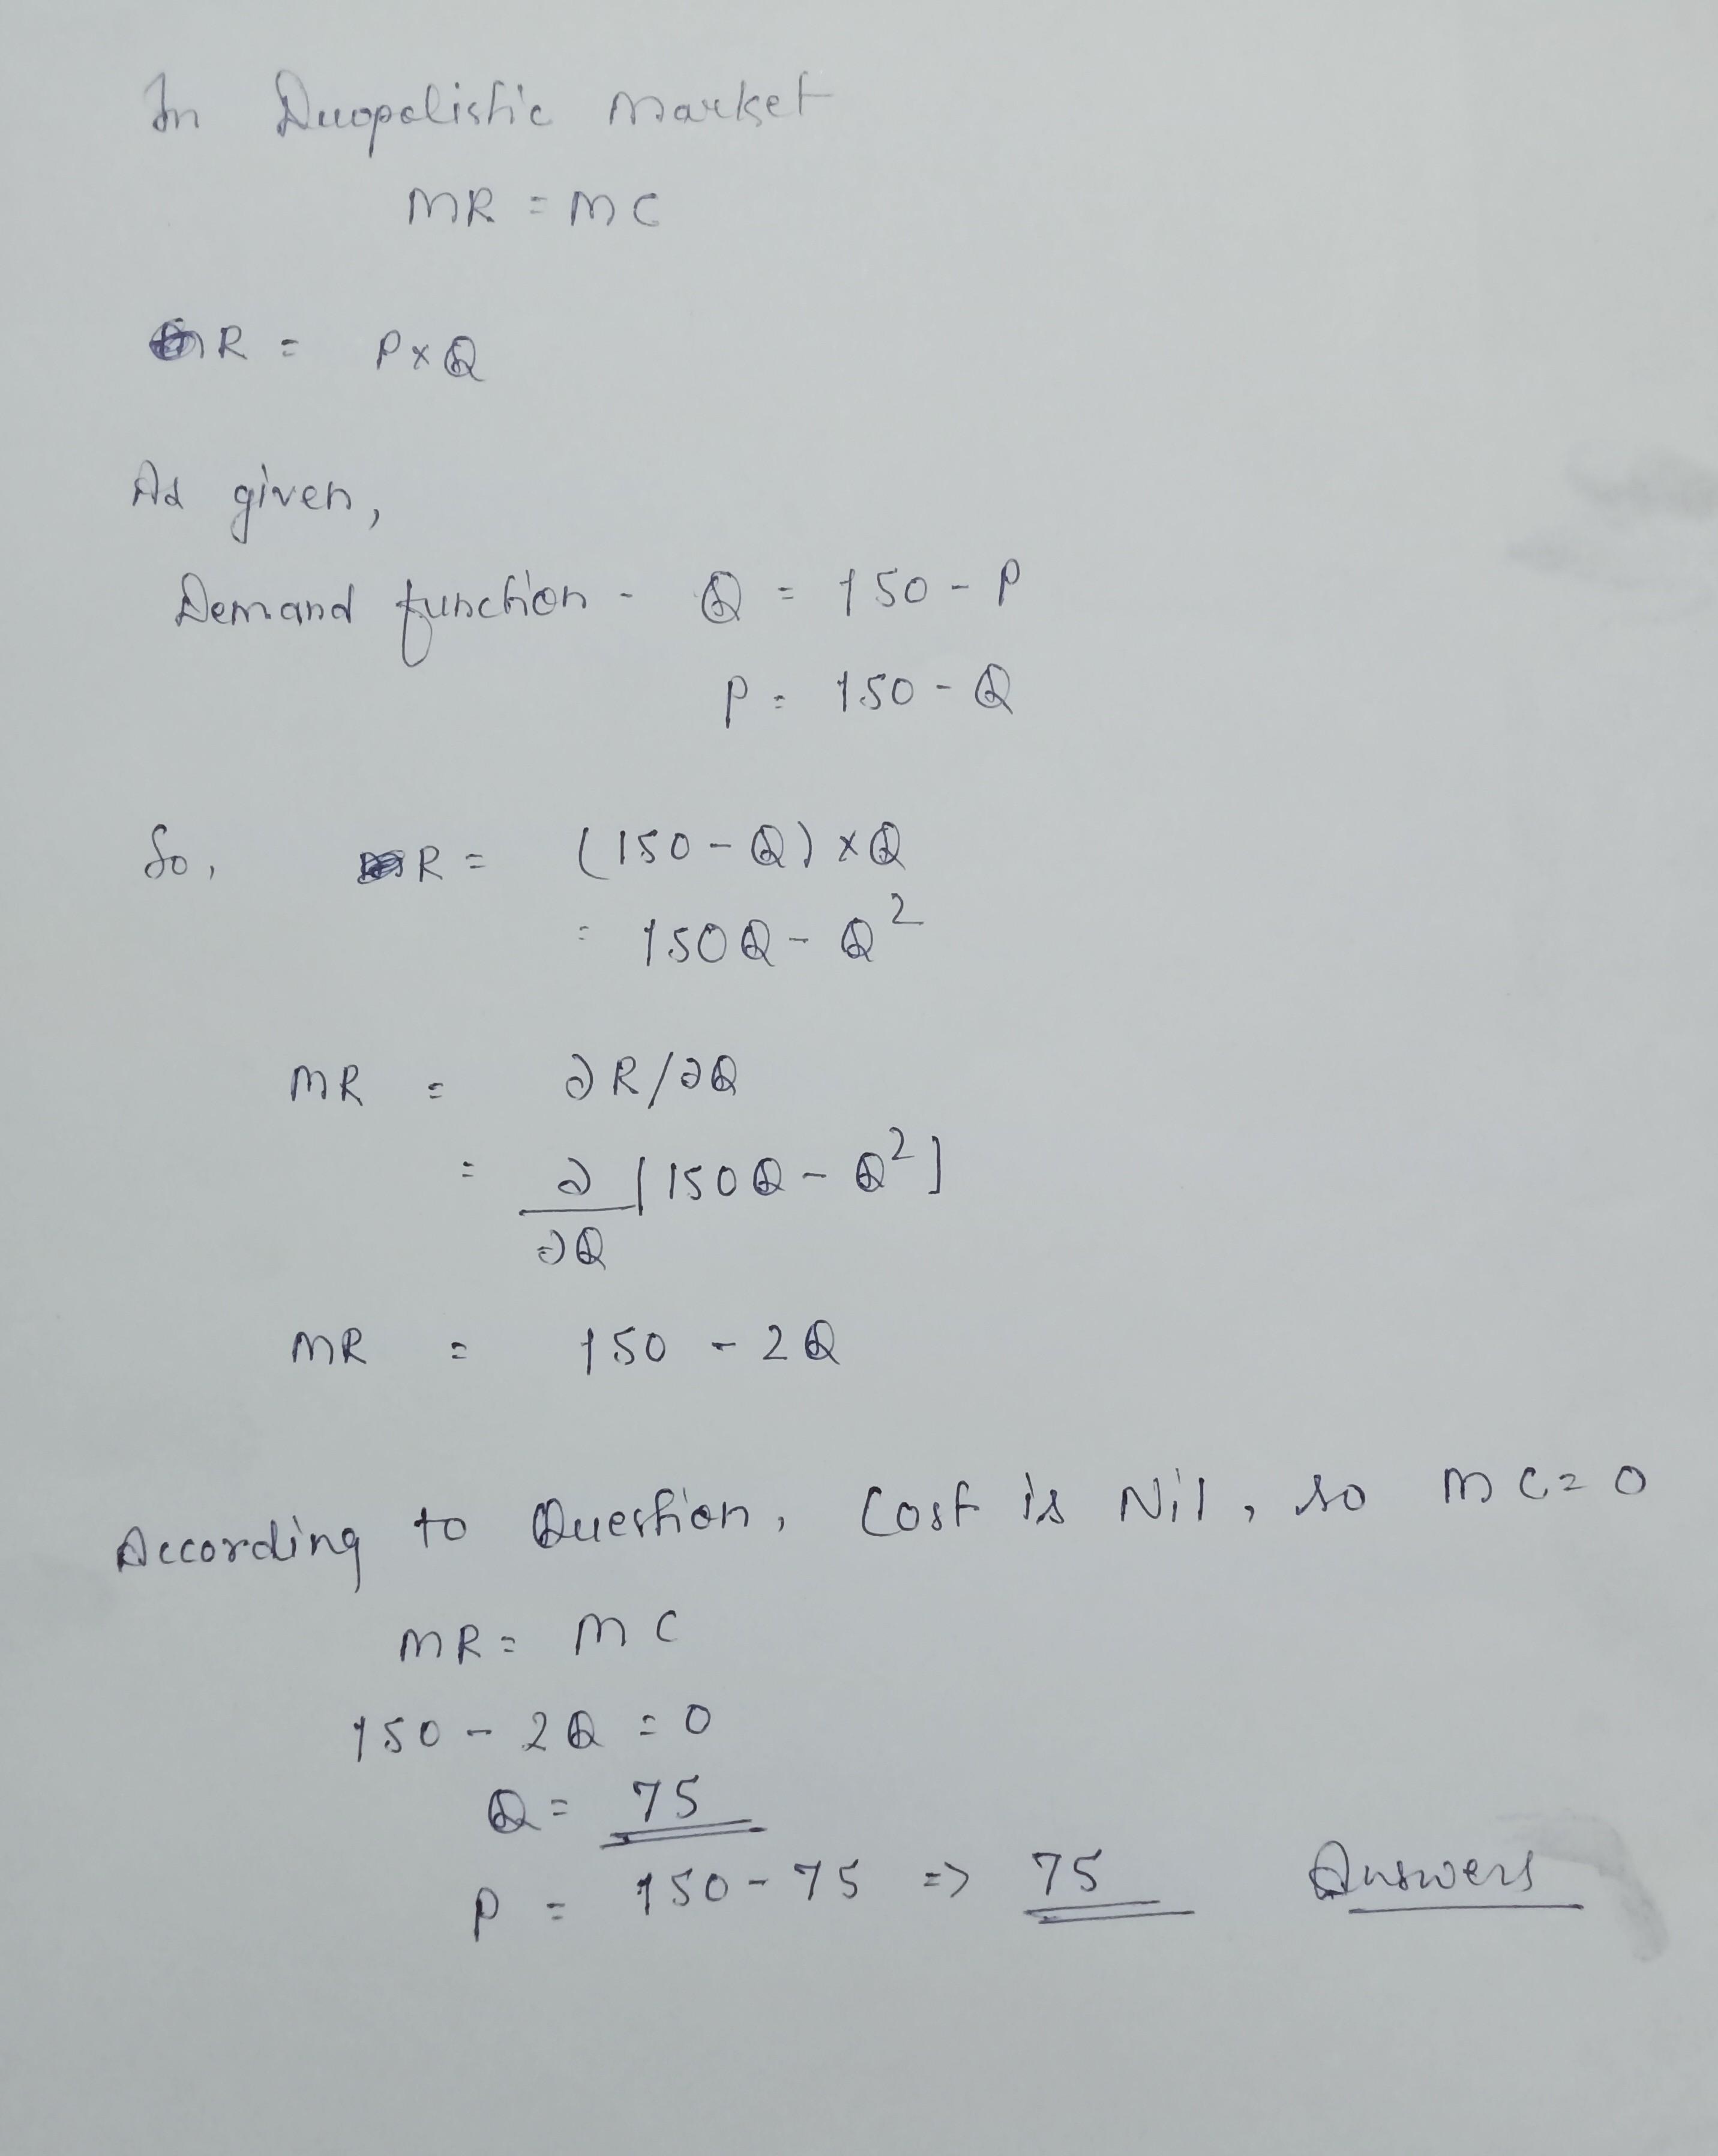 In Duopolistic Market
MR = MC
R = P×Q
As given,
Demand function - Q = 150 - P
P = 150 - Q
So, R = (150 - Q) × Q
= 150Q - Q²
MR = ∂R/∂Q
= ∂/∂Q [150Q - Q²]
MR = 150 - 2Q
According to Question, Cost is Nil, so MC = 0
MR = MC
150 - 2Q = 0
Q = 75
P = 150 - 75 => 75 Answers